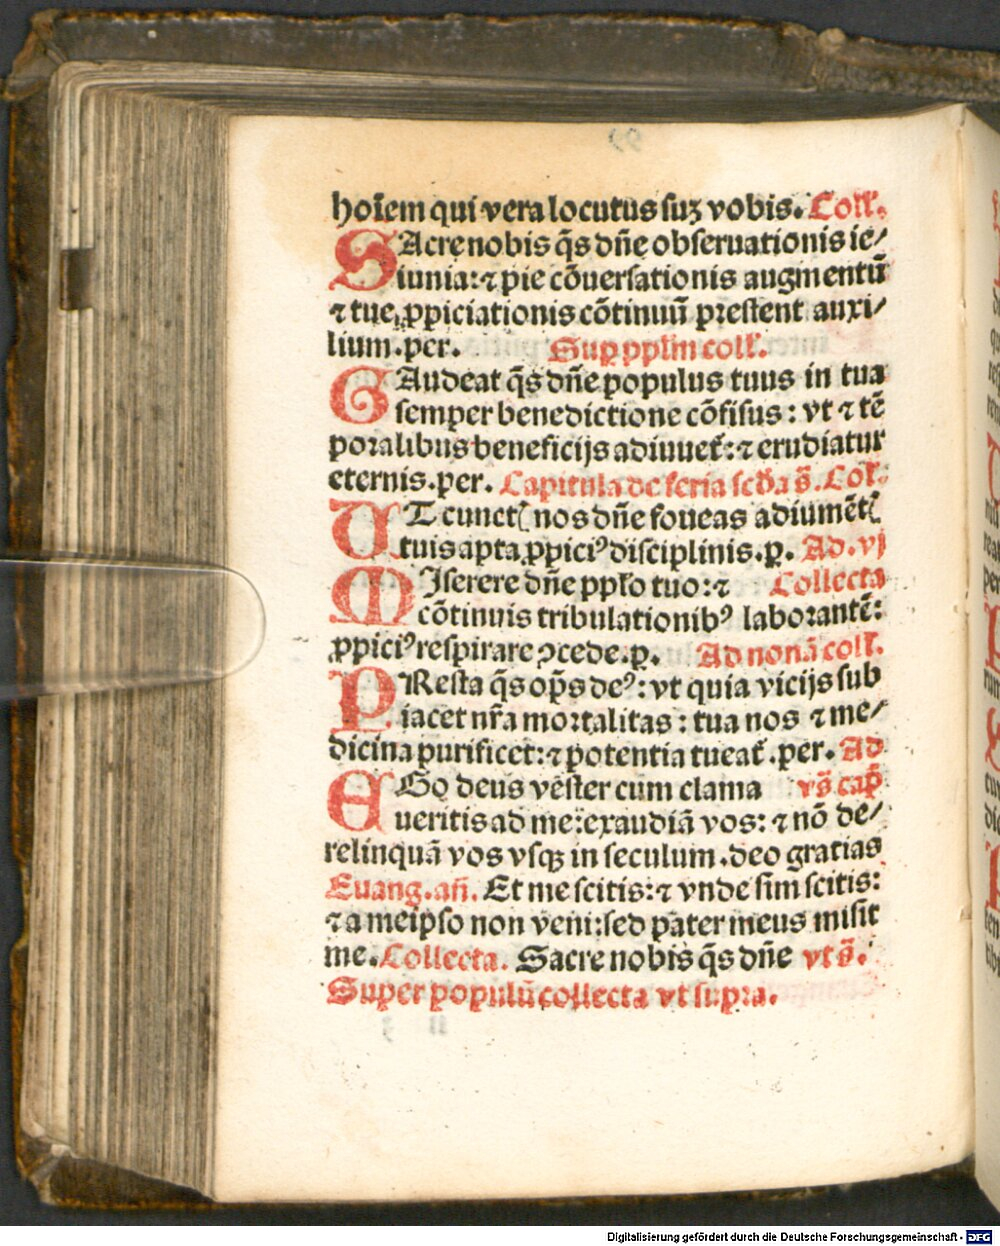 hoı̃em qui vera locutus suꝫ vobis. Coll̃.
SAcre nobis q̃s dñe obseruationis ie/
iunia: ⁊ pie cõuersationis augmentũ
⁊ tue ꝓpiciationis cõtinuũ prestent auxi/
lium. per. Suꝑ ppl̃m coll̃.
GAudeat q̃s dñe populus tuus in tua
semper benedictione cõfisus: vt ⁊ tẽ
poralibus beneficijs adiuuet̃: ⁊ erudiatur
eternis. per. Capitula de feria scd̃a s̃. Col̃.
VT cunctꝭ nos dñe foueas adiumẽtꝭ
tuis apta ꝓpiciꝰ disciplinis. p̱. Ad. vj
MIserere dñe ppl̃o tuo: ⁊ Collecta
cõtinuis tribulationibꝰ laborantẽ:
ꝓpiciꝰ respirare ꝯcede. p̱. Ad nonã coll̃.
PResta q̃s op̃s deꝰ: vt quia vicijs sub
iacet nr̃a mortalitas: tua nos ⁊ me/
dicina purificet: ⁊ potentia tueat̃. per. Ad
EGo deus vester cum clama vs̃ cap̃
ueritis ad me: exaudiã vos: ⁊ nõ de/
relinquã vos vsqꝫ in seculum. deo gratias
Euang. añ. Et me scitis: ⁊ vnde sim scitis:
⁊ a meipso non veni: sed pater meus misit
me. Collecta. Sacre nobis q̃s dñe vt s̃.
Super populũ collecta vt supra.
Digitalisierung gefördert durch die Deutsche Forschungsgemeinschaft - DFG